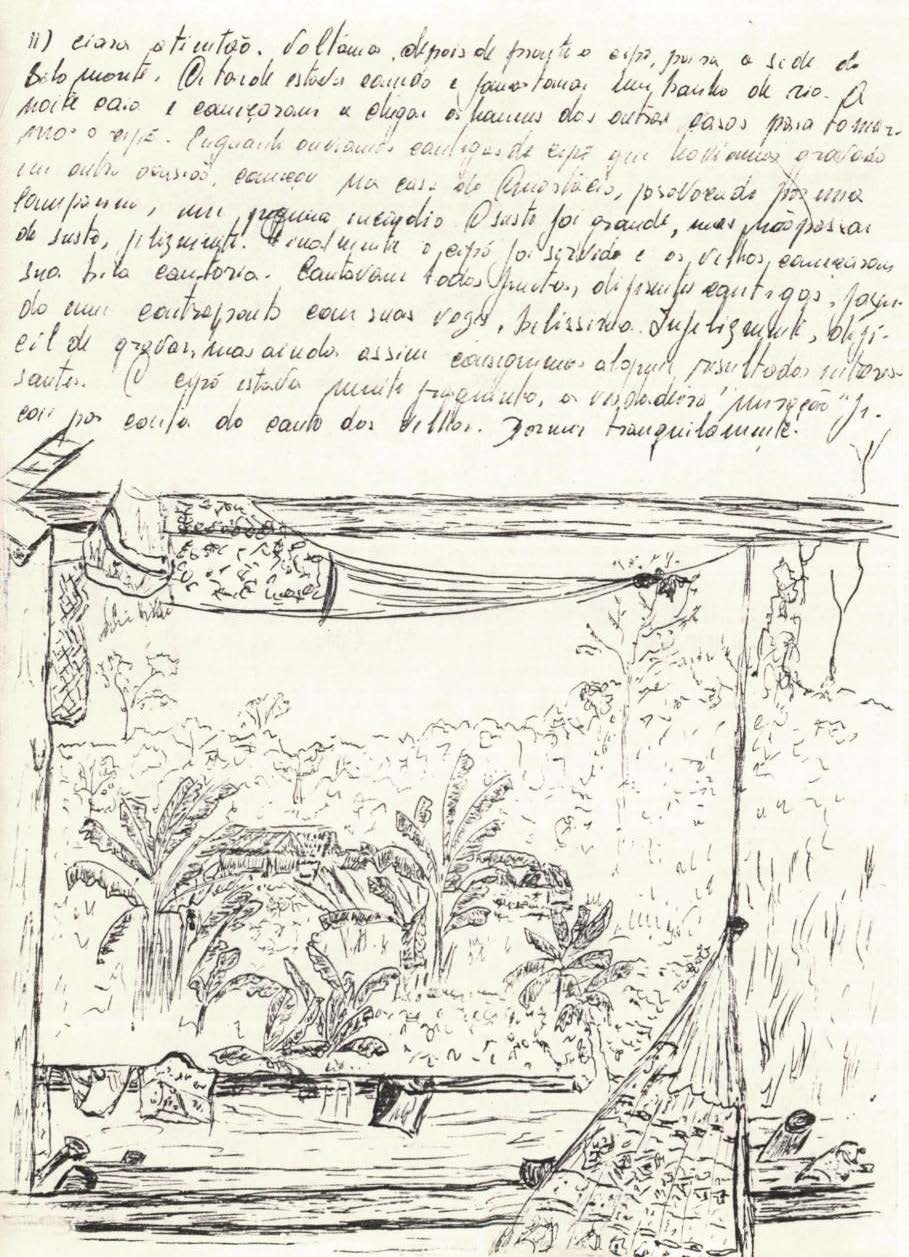 11) ciosa atenção. Voltamos, depois de pronto o cipó, para a sede do
Belo monte. A tarde estava caindo e fomos tomar um banho de rio. A
noite caiu e começaram a chegar os homens das outras casas para tomar-
mos o cipó. Enquanto ouvíamos cantigas de cipó que havíamos gravado
em outra ocasião, começou na casa do Anastácio, provocado por uma
lamparina, um pequeno incêndio. O susto foi grande, mas não passou
de susto, felizmente. Finalmente o cipó foi servido e os velhos começaram
sua bela cantoria. Cantavam todos juntos, diferentes cantigas, fazen-
do um contraponto com suas vozes, belíssimo. Infelizmente, difí-
cil de gravar, mas ainda assim conseguimos alguns resultados interes-
santes. O cipó estava muito fraquinho, a verdadeira "miração" fi-
cou por conta do canto dos velhos. Dormi tranquilamente.